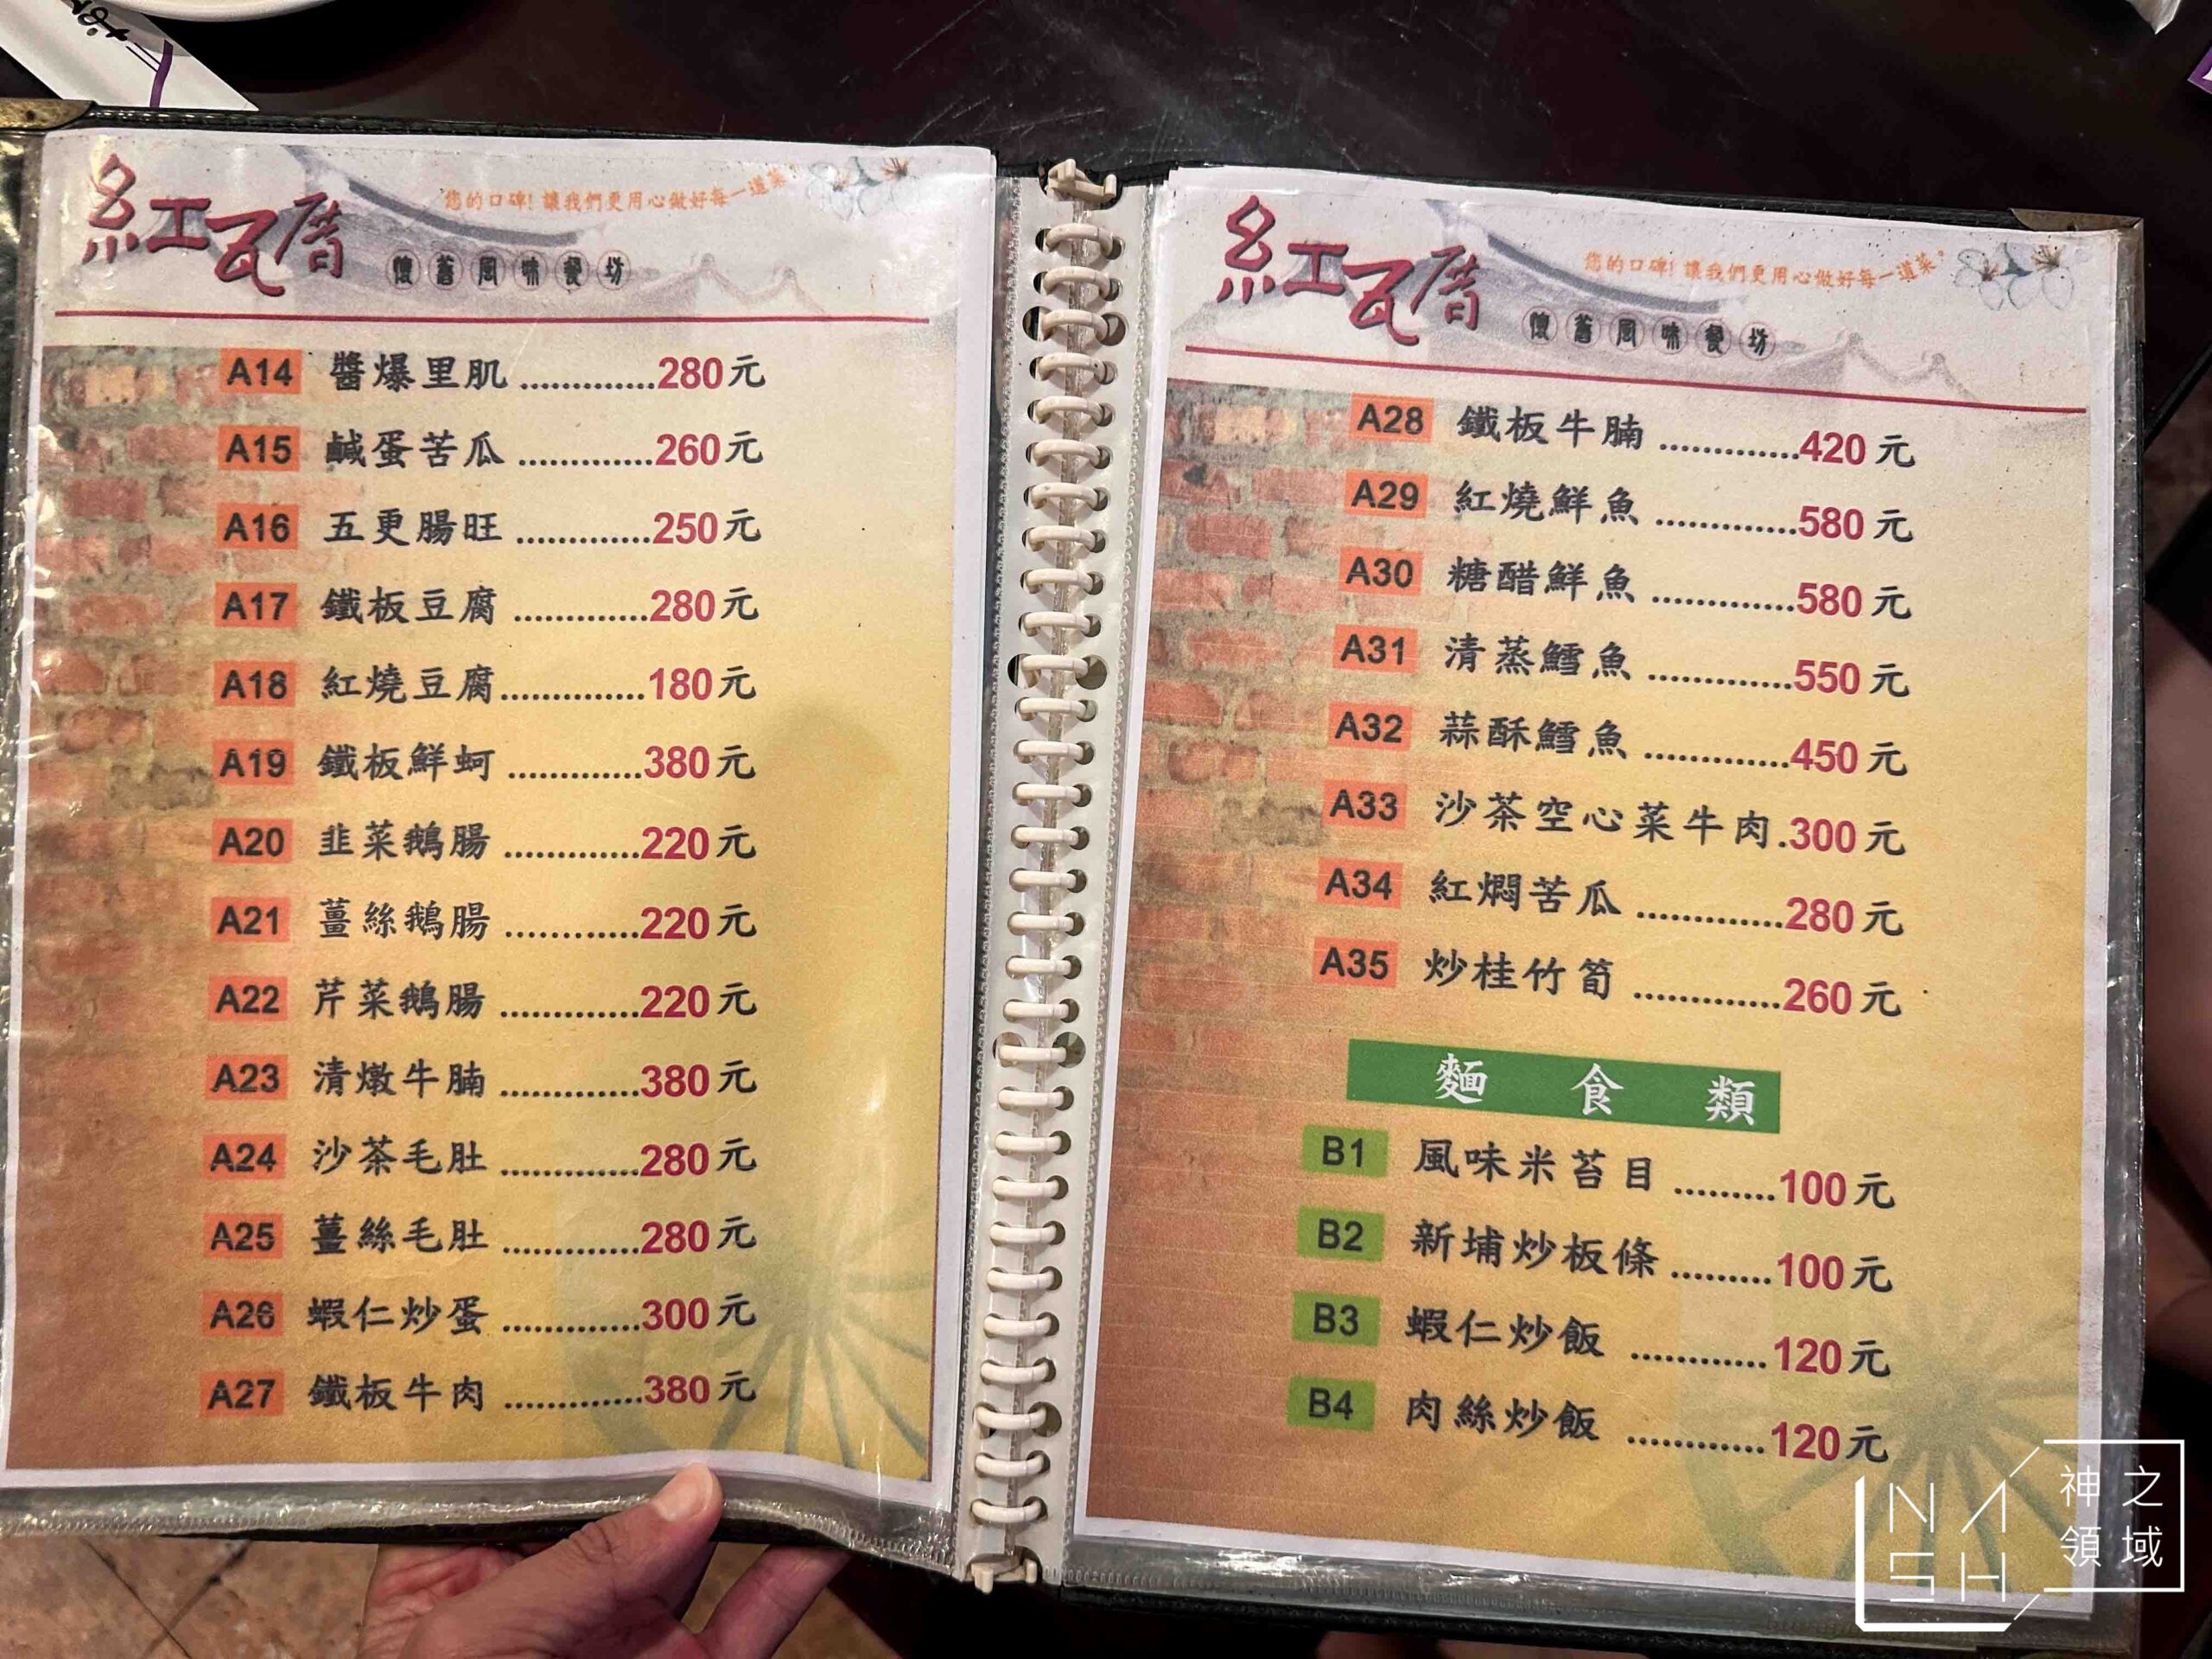 紅瓦厝
您的口碑! 讓我們更用心做好每一道菜,
懷舊風味餐坊
A14 醬爆里肌.............280元
A15 鹹蛋苦瓜.............260元
A16 五更腸旺.............250元
A17 鐵板豆腐.............280元
A18 紅燒豆腐..............180元
A19 鐵板鮮蚵.............380元
A20 韭菜鵝腸.............220元
A21 薑絲鵝腸.............220元
A22 芹菜鵝腸.............220元
A23 清燉牛腩.............380元
A24 沙茶毛肚.............280元
A25 薑絲毛肚.............280元
A26 蝦仁炒蛋.............300元
A27 鐵板牛肉.............380元
紅瓦厝
您的口碑! 讓我們更用心做好每一道菜,
懷舊風味餐坊
A28 鐵板牛腩.............420元
A29 紅燒鮮魚.............580元
A30 糖醋鮮魚.............580元
A31 清蒸鱈魚.............550元
A32 蒜酥鱈魚.............450元
A33 沙茶空心菜牛肉.300元
A34 紅燜苦瓜.............280元
A35 炒桂竹筍.............260元
麵食類
B1 風味米苔目.........100元
B2 新埔炒板條.........100元
B3 蝦仁炒飯............120元
B4 肉絲炒飯............120元
NASH
神之領域